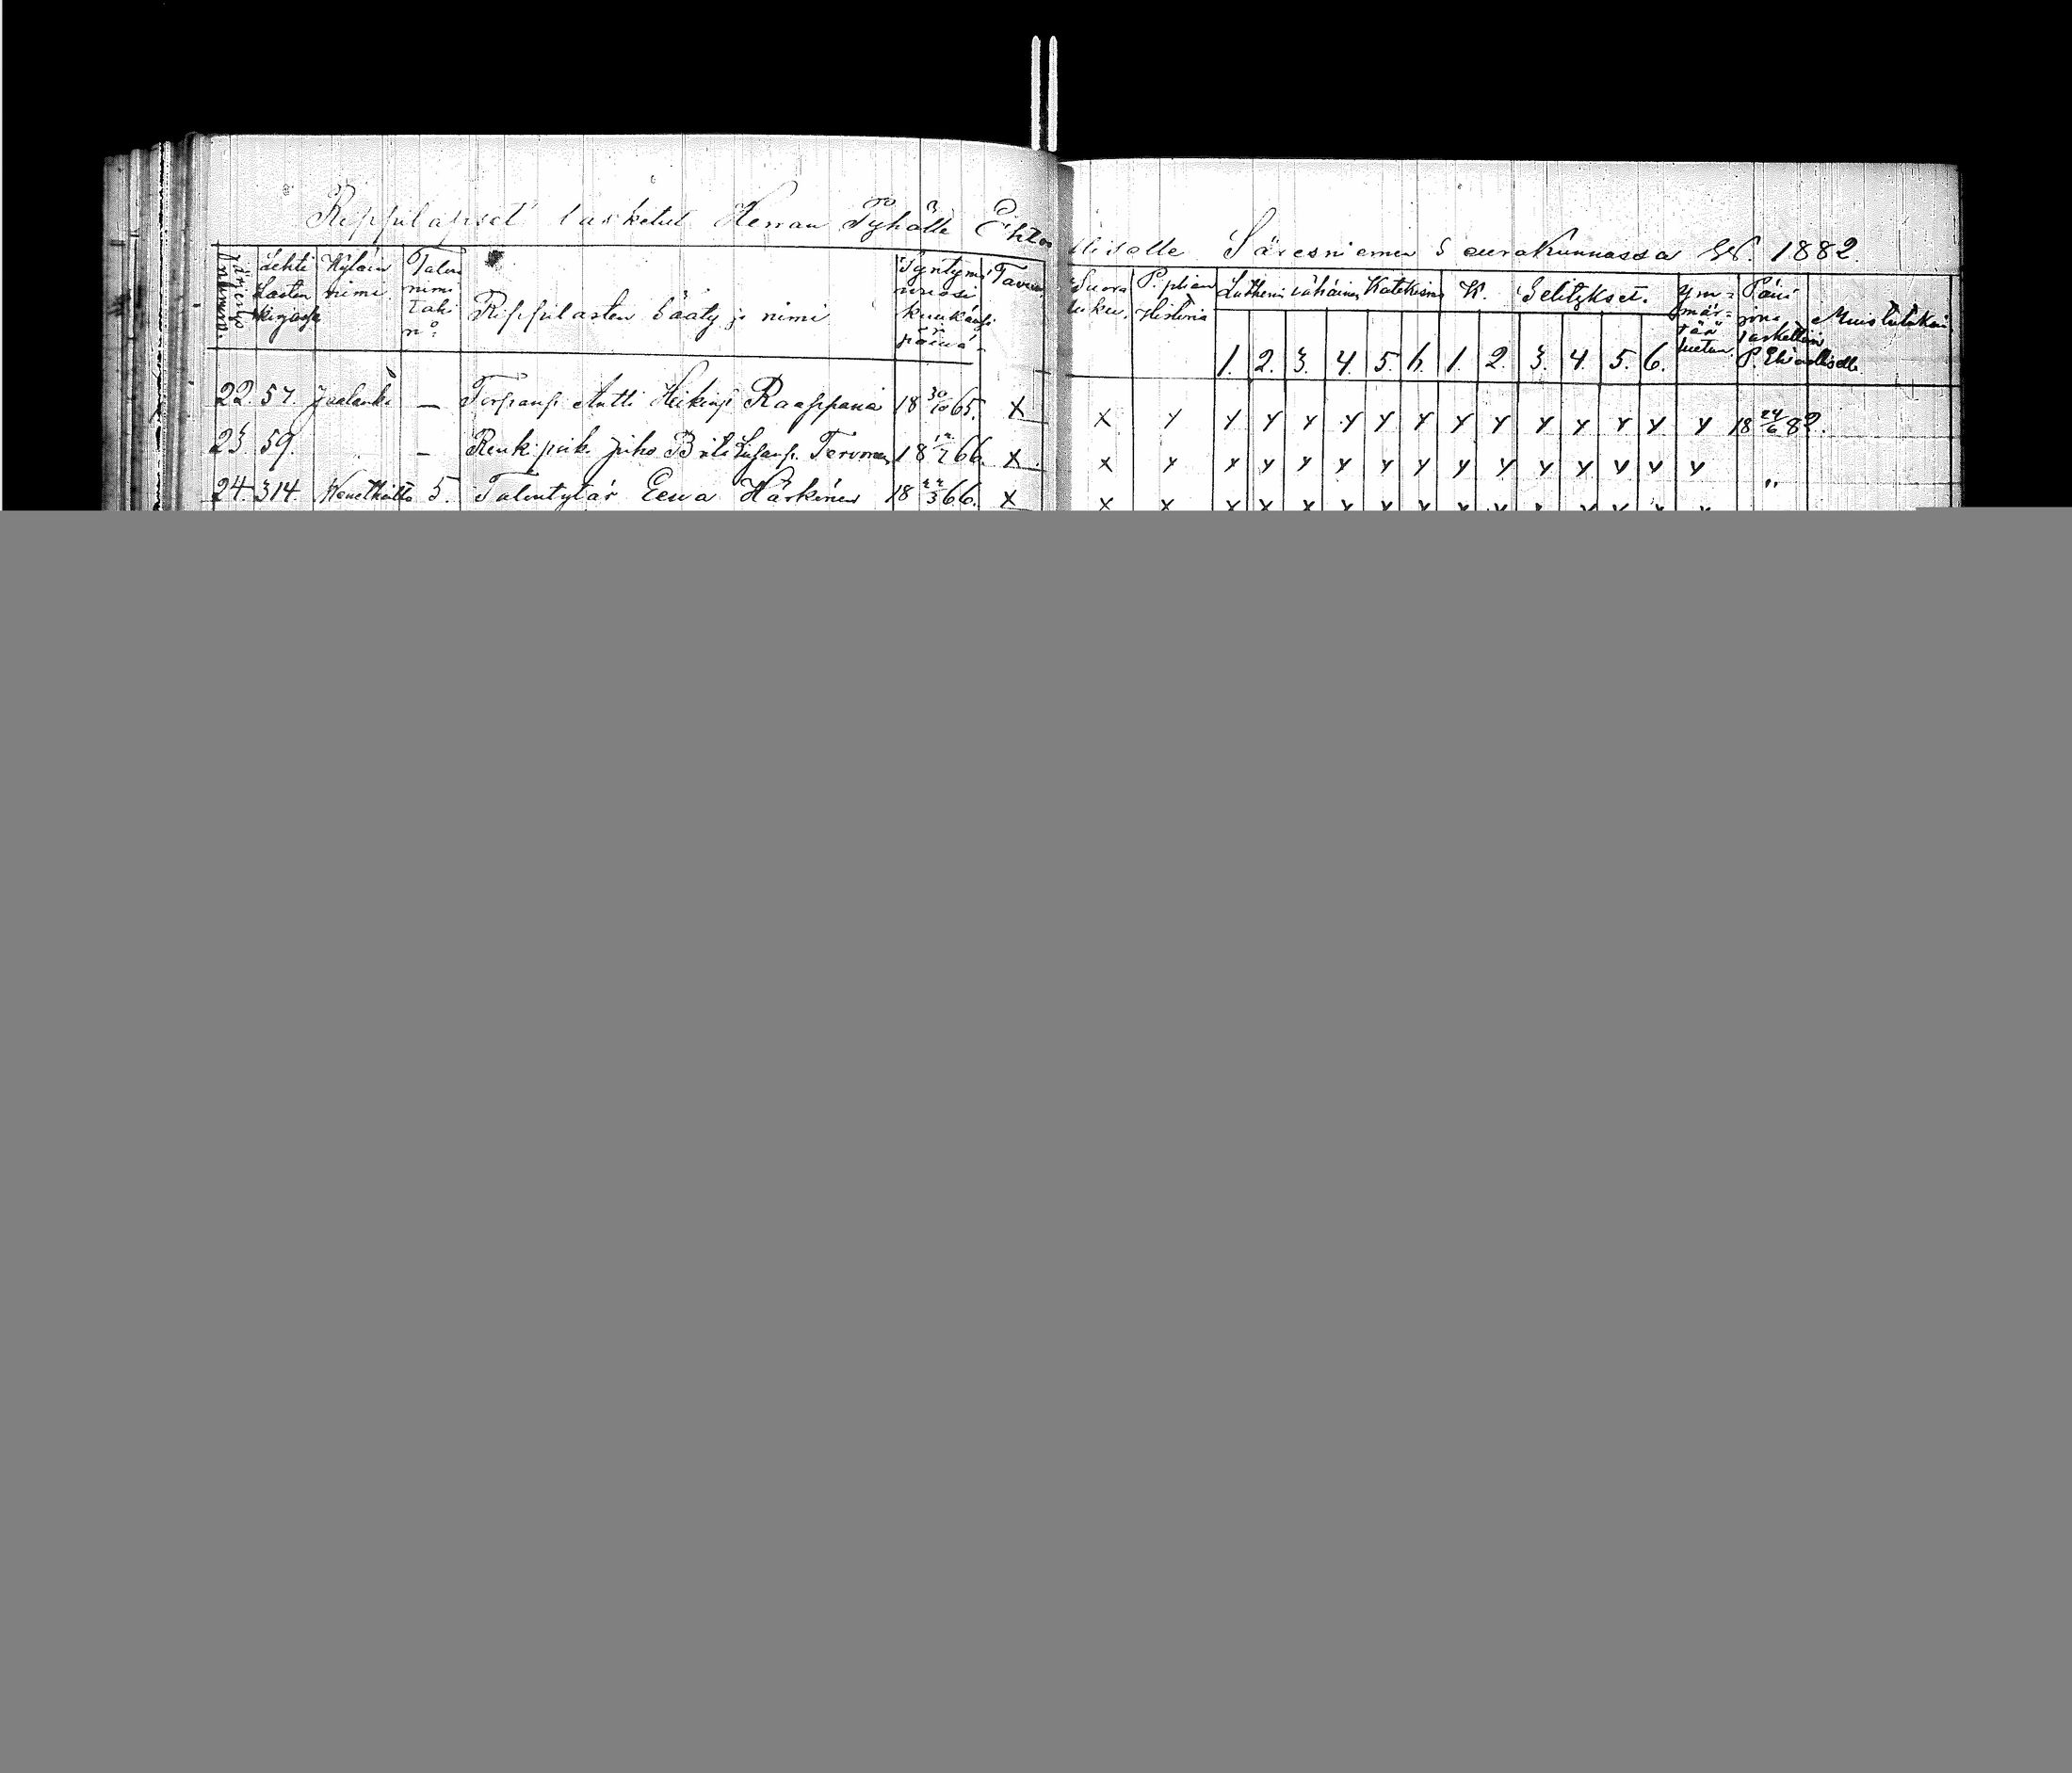 Rippilapset lasketut Herran Pyhälle Ehtoo
lliselle Säresniemen Seurakunnassa W. 1882.
Lehti Kyläin Talon Syntymä Tavaus
Lasten nimi nimi vuosi
kirjassa tahi Rippilasten Sääty ja nimi kuukausi
n:o päivä
Suora P. piblian Lutherus vähäinen Katekismus K. Selitykset. Ym= Päivä
luku. Historia märr= jona Muistutuksia
tään laskettiin
1. 2. 3. 4. 5. 6. 1. 2. 3. 4. 5. 6. P. Ehtoolliselle
22. 57. Jaalanka — Torpanp. Antti Heikinp. Raappana 18 30/10 65. x
x x x x x x x x x x x x x x x 18 24/6 82.
23. 59. — Renk. poik. Juho Tervonen 18 66. x
x x x x x x x x x x x x x x x „
24. 314. 5. Talontytär Eeva Härkönen 18 22/3 66. x
x x x x x x x x x x x x x x x